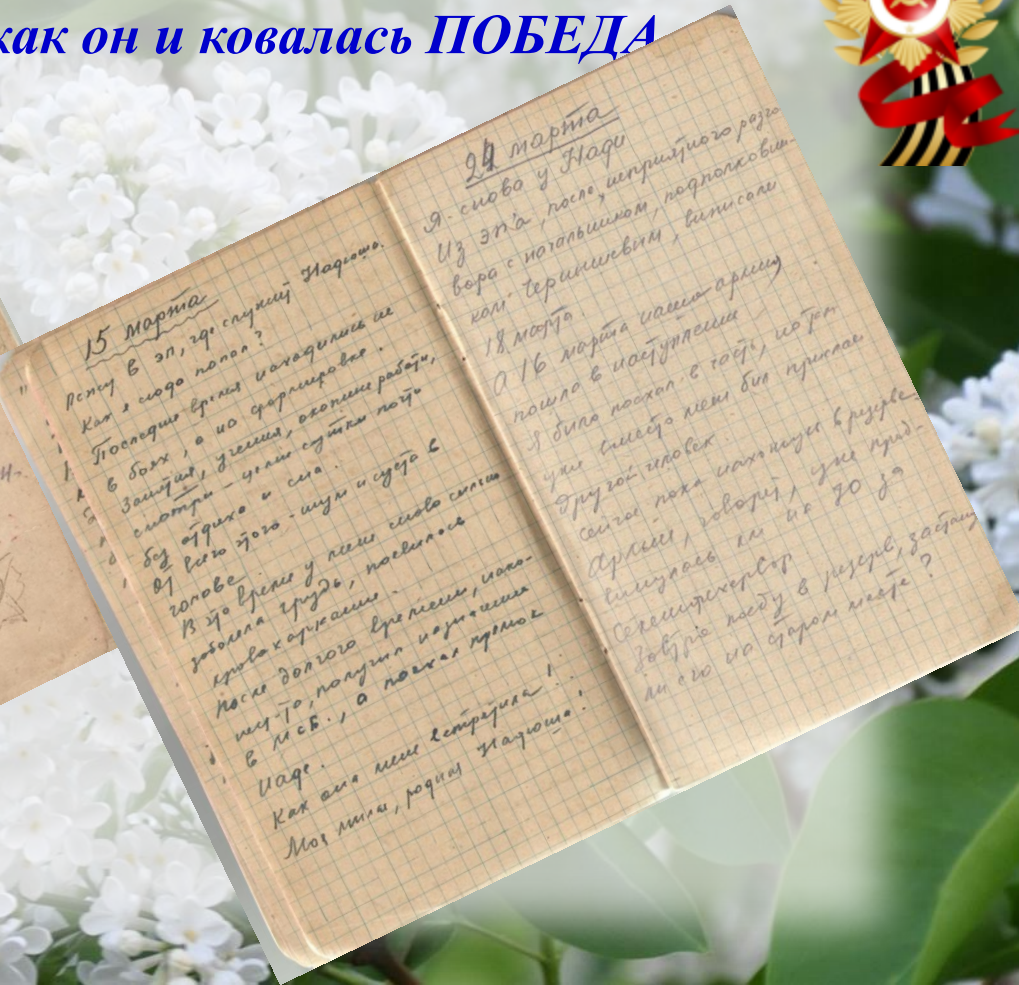 как он и ковалась ПОБЕДА
15 марта
Пишу в эп, где служит Надюша.
Как я сюда попал?
Последнее время находились не
в боях, а на формировке.
Занятия, учения, окопные работы,
смотры - целые сутки почти
без отдыха и сна.
От всего этого - шум и суета в
голове.
В это время у меня снова сильно
заболела грудь, появилось
кровохарканье.
После долгого времени, нако-
нец-то, получил назначение
в МСБ., а поехал прямо к
Наде.
Как она меня встретила!
Моя милая, родная Надюша!
24 марта
Я снова у Нади
Из эп'а, после неприятного разго-
вора с начальником, подполковни-
ком Чернышевым, выписали
18 марта.
А 16 марта наша армия
пошла в наступление
Я было поехал в часть, но там
уже вместо меня был прислан
другой человек.
Сейчас пока нахожусь в резерве
Армия, говорят, уже прод-
винулась км на 70 за
Секешфехервар
Завтра поеду в резерв, застану
ли его на старом месте?